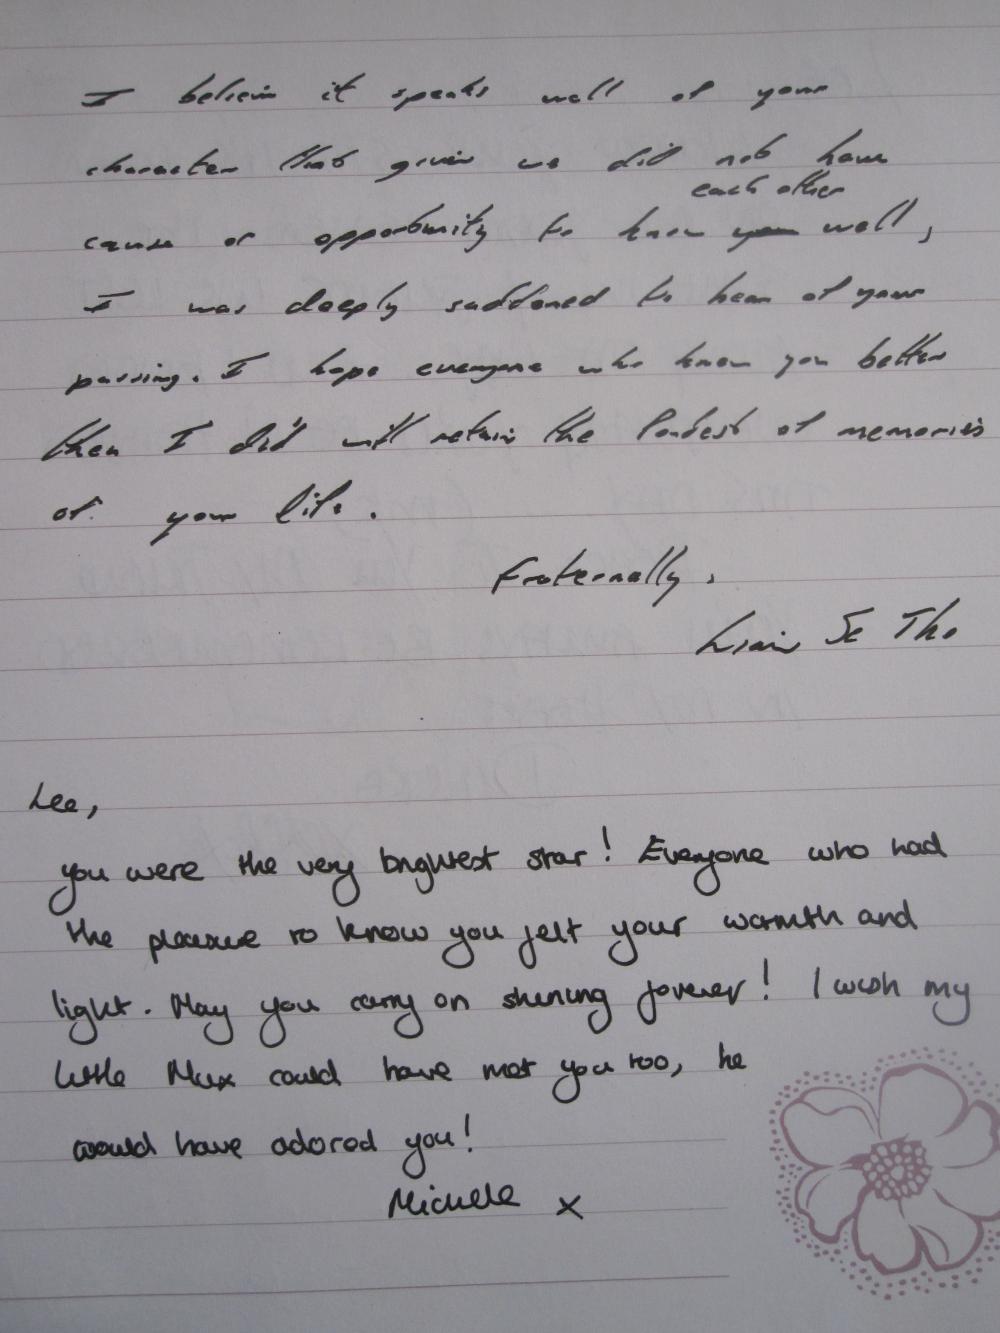 I believe it speaks well of your
character that given we did not have
cause or opportunity to know you each other well,
I was deeply saddened to hear of your
passing. I hope everyone who knew you better
then I did will retain the fondest of memories
of your life.
Fraternally,
Lee,
you were the very brightest star! Everyone who had
the pleasure to know you felt your warmth and
light. May you carry on shining forever! I wish my
little Max could have met you too, he
would have adored you!
Michelle x